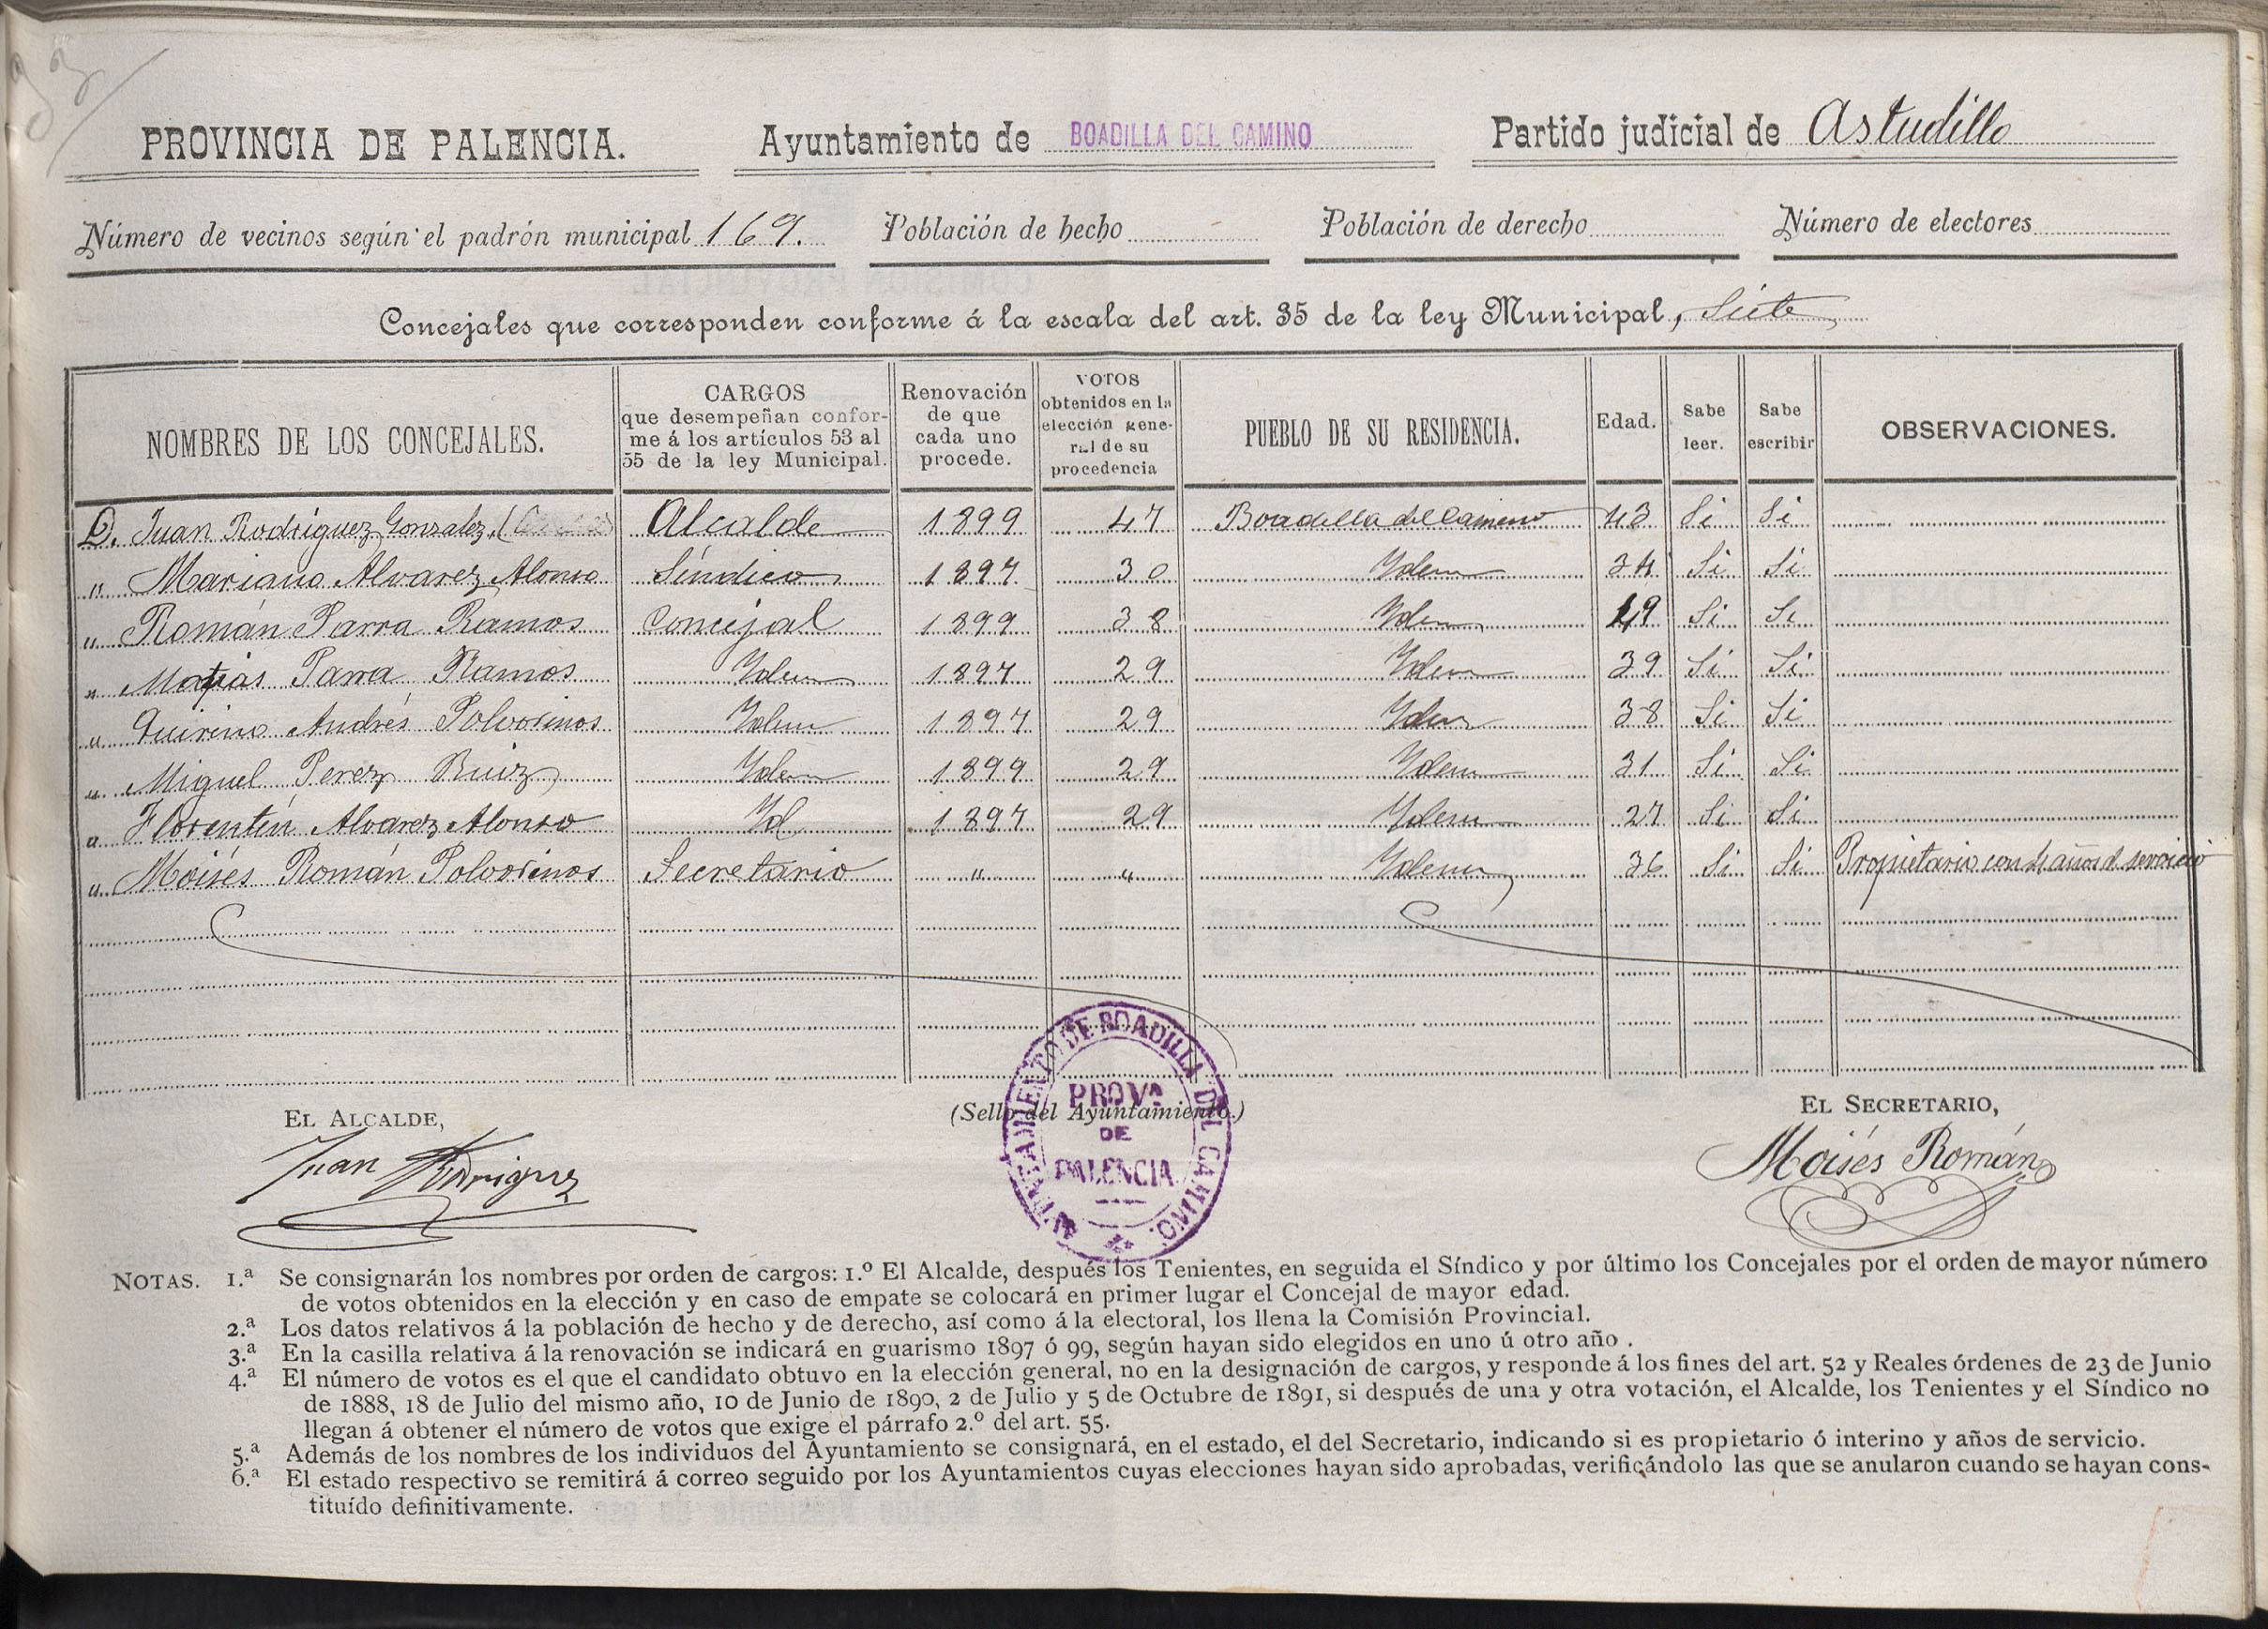 93
PROVINCIA DE PALENCIA. Ayuntamiento de BOADILLA DEL CAMINO Partido judicial de Astudillo
Número de vecinos según el padrón municipal 169. Población de hecho Población de derecho Número de electores
Concejales que corresponden conforme á la escala del art. 35 de la ley Municipal, Siete
NOMBRES DE LOS CONCEJALES. CARGOS que desempeñan conforme á los artículos 53 al 55 de la ley Municipal. Renovación de que cada uno procede. VOTOS obtenidos en la elección general de su procedencia PUEBLO DE SU RESIDENCIA. Edad. Sabe leer. Sabe escribir OBSERVACIONES.
D. Juan Rodriguez Gonzalez Alcalde 1899 47 Boadilla del Camino 43 Si Si
" Mariano Alvarez Alonso Síndico 1897 30 Ydem 34 Si Si
" Román Parra Ramos Concejal 1899 38 Ydem 49 Si Si
" Matias Parra Ramos Ydem 1897 29 Ydem 39 Si Si
" Quirino Andrés Polvorinos Ydem 1897 29 Ydem 38 Si Si
" Miguel Perez Ruiz Ydem 1899 29 Ydem 31 Si Si
" Florentín Alvarez Alonso Yd 1897 29 Ydem 27 Si Si
" Moisés Román Polvorinos Secretario " " Ydem 36 Si Si Propietario con años de servicio
EL ALCALDE, (Sello del Ayuntamiento.) EL SECRETARIO,
Juan Rodriguez Moisés Román
AYUNTAMIENTO DE BOADILLA DEL CAMINO.
PROVª
DE
PALENCIA
NOTAS. 1.ª Se consignarán los nombres por orden de cargos: 1.º El Alcalde, después los Tenientes, en seguida el Síndico y por último los Concejales por el orden de mayor número
de votos obtenidos en la elección y en caso de empate se colocará en primer lugar el Concejal de mayor edad.
2.ª Los datos relativos á la población de hecho y de derecho, así como á la electoral, los llena la Comisión Provincial.
3.ª En la casilla relativa á la renovación se indicará en guarismo 1897 ó 99, según hayan sido elegidos en uno ú otro año .
4.ª El número de votos es el que el candidato obtuvo en la elección general, no en la designación de cargos, y responde á los fines del art. 52 y Reales órdenes de 23 de Junio
de 1888, 18 de Julio del mismo año, 10 de Junio de 1890, 2 de Julio y 5 de Octubre de 1891, si después de una y otra votación, el Alcalde, los Tenientes y el Síndico no
llegan á obtener el número de votos que exige el párrafo 2.º del art. 55.
5.ª Además de los nombres de los individuos del Ayuntamiento se consignará, en el estado, el del Secretario, indicando si es propietario ó interino y años de servicio.
6.ª El estado respectivo se remitirá á correo seguido por los Ayuntamientos cuyas elecciones hayan sido aprobadas, verificándolo las que se anularon cuando se hayan cons-
tituído definitivamente.